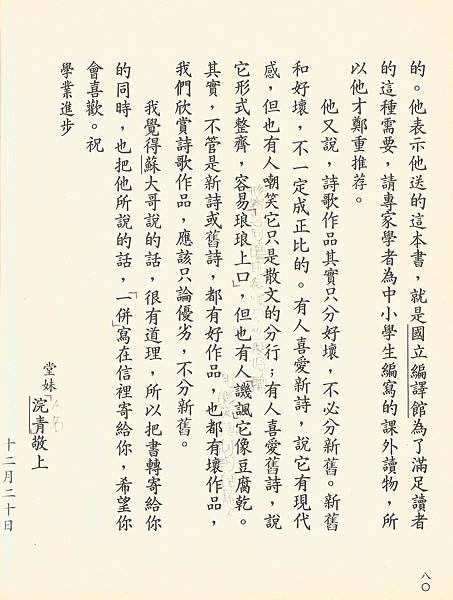 的。他表示他送的這本書，就是國立編譯館為了滿足讀者
的這種需要，請專家學者為中小學生編寫的課外讀物，所
以他才鄭重推荐。
他又說，詩歌作品其實只分好壞，不必分新舊。新舊
和好壞，不一定成正比的。有人喜愛新詩，說它有現代
感，但也有人嘲笑它只是散文的分行；有人喜愛舊詩，說
它形式整齊，容易琅琅上口，但也有人譏諷它像豆腐乾。
其實，不管是新詩或舊詩，都有好作品，也都有壞作品，
我們欣賞詩歌作品，應該只論優劣，不分新舊。
我覺得蘇大哥說的話，很有道理，所以把書轉寄給你
的同時，也把他所說的話，一併寫在信裡寄給你，希望你
會喜歡。祝
學業進步
堂妹 浣青敬上
十二月二十日
八〇